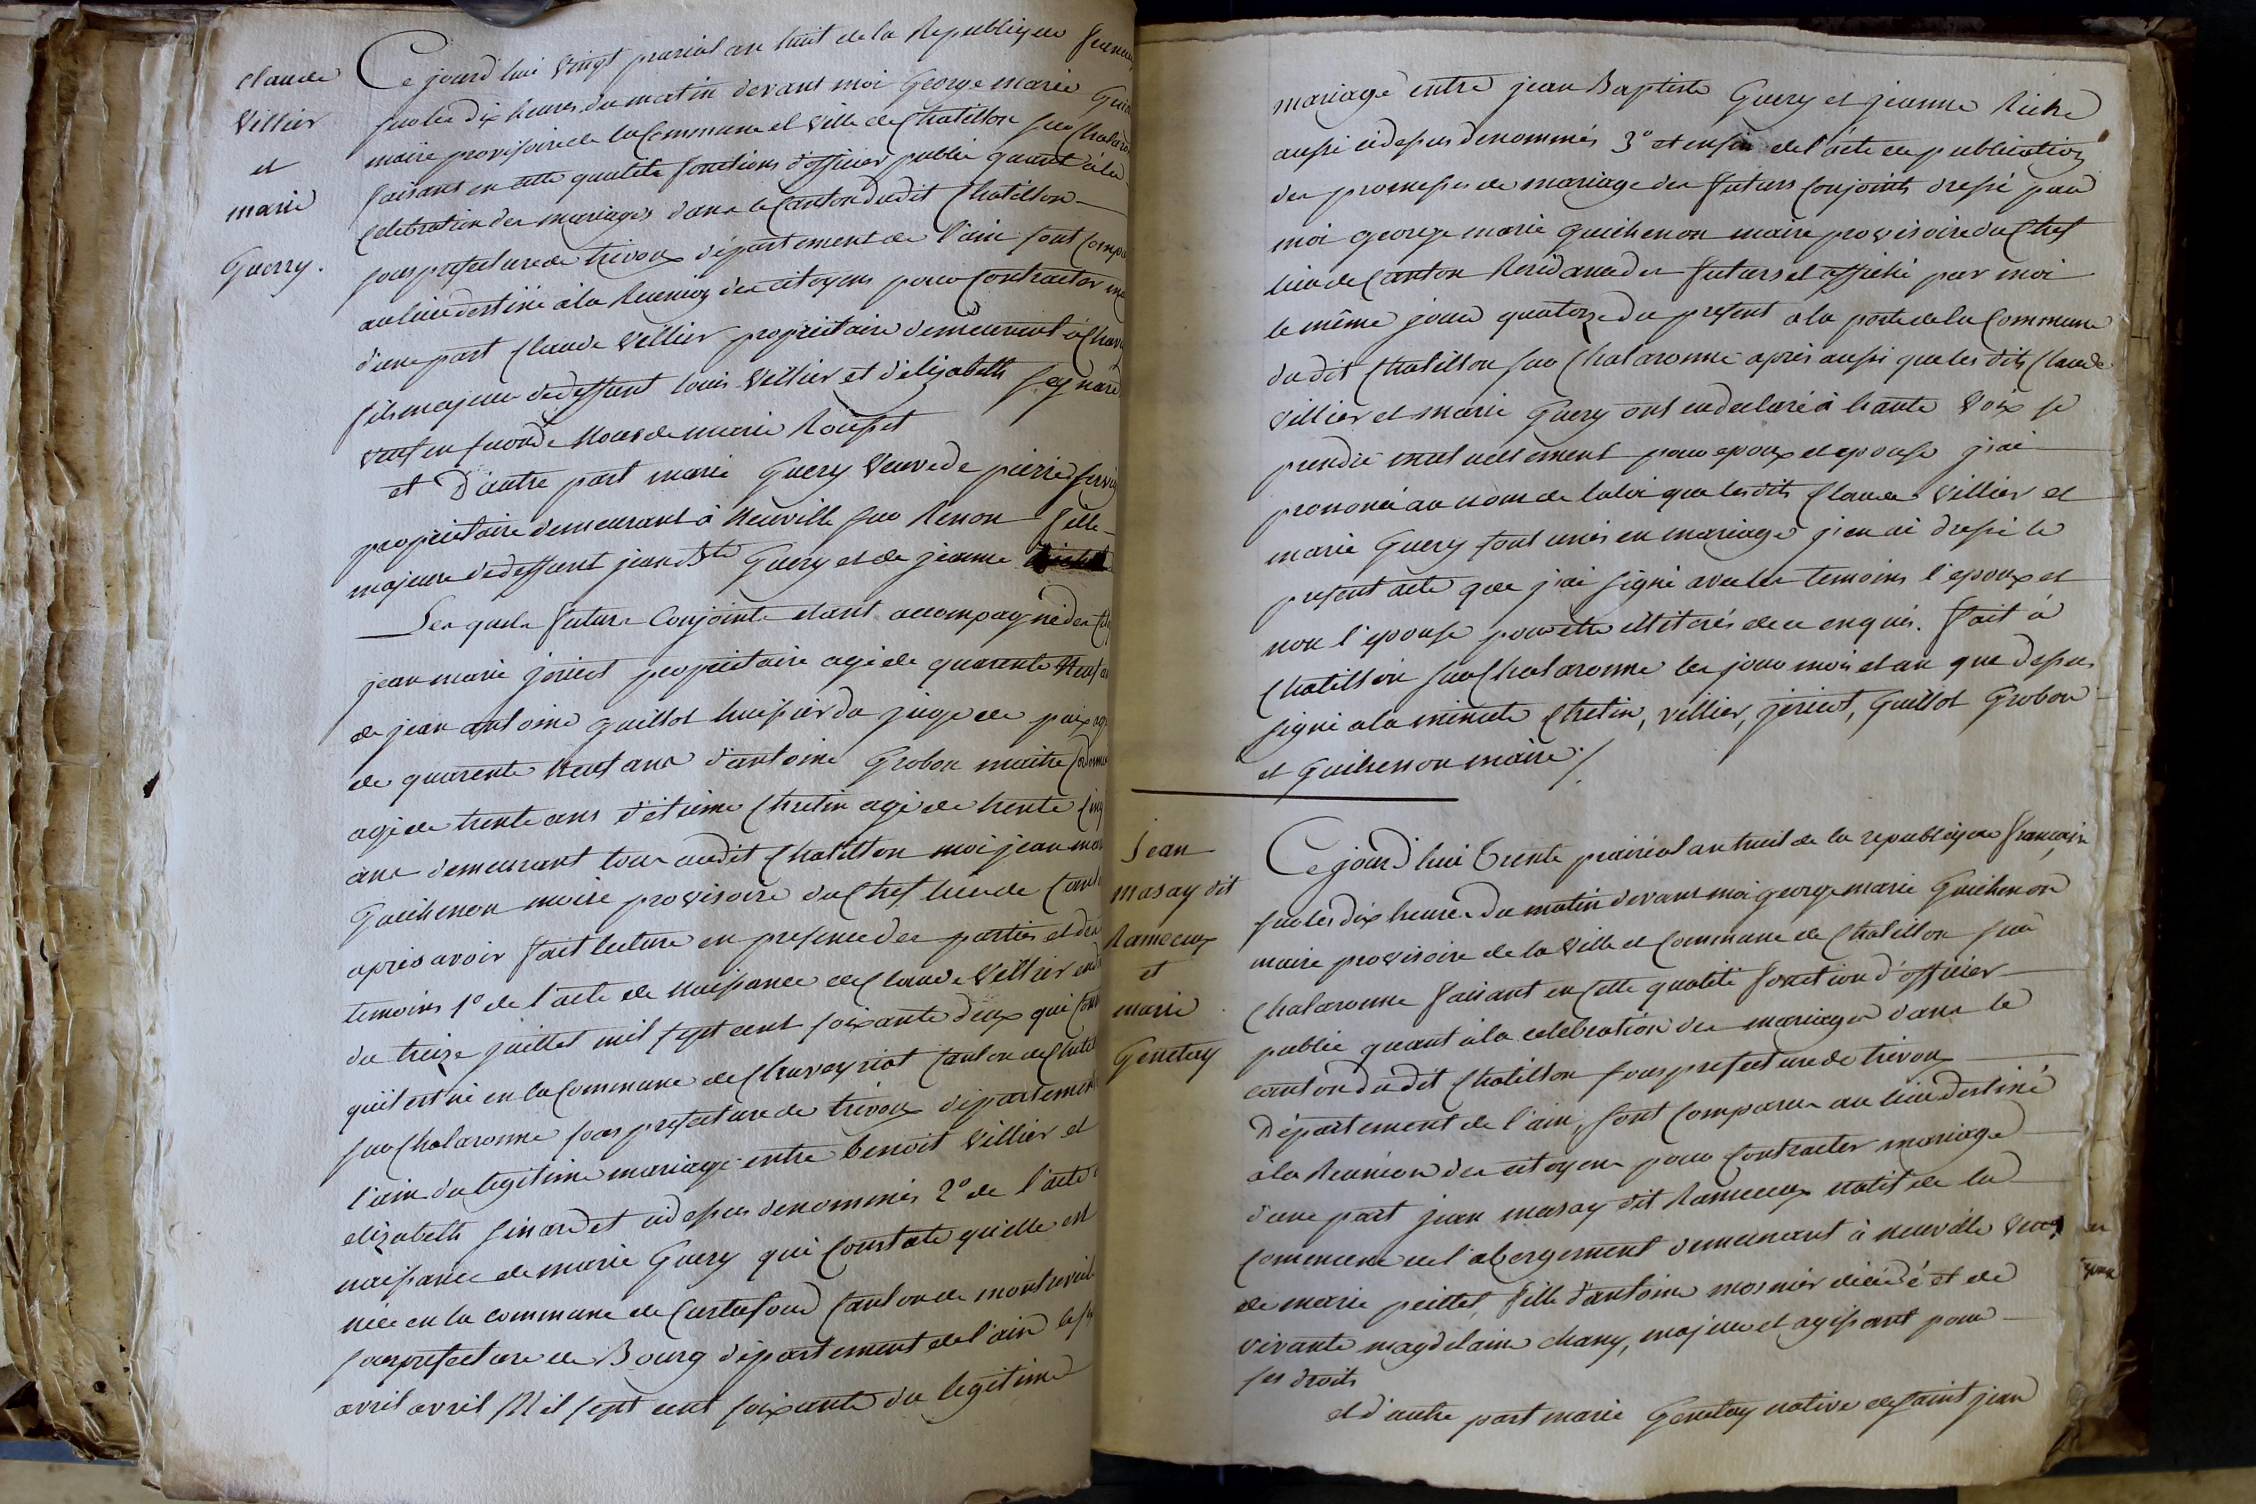 Claude
Villier
et
marie
Guerry.
Ce jourd'hui vingt prairial an huit de la Republique
sur les dix heures du matin devant moi George marie
maire provisoire de la Commune et ville de Chatillon sur
faisant en cette qualité fonctions d'officier public quant à la
Celebration des mariages dans le Canton dudit Chatillon
sousprefecture de trivoux département de l'ain sont
au lieu destiné à la Reunion des citoyens pour Contracter
d'une part Claude Villier proprietaire demeurant à
fils majeur de deffunt louis Villier et d'elizabeth
veuf en seconde Noces de marie
et D'autre part marie Guery Veuve de pierre
proprietaire demeurant à Neuville sur Renon fille
majeure de deffunt jean Bte Guery et de jeanne
Les quels futurs Conjoints étant accompagné des
jean marie jorict proprietaire agé de quarente Neuf
de jean antoine guillot huissier du juge de paix
de quarente Neuf ans d'antoine Grobon maitre
agé de trente ans d'etienne Chretin agé de trente
ans demeurant tous audit Chatillon moi jean
Guichenon maire provisoire du Chef lieu de
après avoir fait lecture en presence des parties et
temoins 1° de l'acte de Naissance de Claude Villier
du treize juillet mil sept cent soixante deux qui
qu'il est né en la Commune de Chaveyriat Canton de
sur Chalaronne sous prefecture de trivoux département
l'ain du legitime mariage entre benoit Villier et
elizabeth sinard et cidessus denommés 2° de l'acte
naissance de marie Guery qui Constate qu'elle est
née en la commune de Curtafond Canton de
sousprefecture de Bourg département de l'ain le
avril avril Mil sept cent soixante du legitime
mariage entre jean Baptiste Guery et jeanne Riche
aussi cidessus denommés 3° et enfin de l'acte de publication
des promesses de mariage des futurs Conjoints dressé par
moi george marie guichenon maire provisoire du Chef
lieu de Canton Residence des futurs et affiché par moi
le même jour quatorze du present a la porte de la Commune
du dit Chatillon sur Chalaronne après aussi que les dits Claude
Villier et marie Guery ont eu declaré à haute Voix se
prendre mutuellement pour epoux et epouse j'ai
prononcé au nom de la loi que lesdits Claude Villier et
marie Guery sont unis en mariage j'en ai dressé le
present acte que j'ai signé avec les temoins l'epoux et
non l'epouse pour etre illiterés de ce enquis. fait à
Chatillon sur Chalaronne les jour mois et an que dessus
signé a la minute Chretin, villier, jorict, Guillot Grobon
et Guichenon maire /
Jean
masay dit
Rameaux
et
marie
Genetay
Ce jourd'hui trente prairial an huit de la republique française
sur les dix heures du matin devant moi george marie Guichenon
maire provisoire de la Ville et Commune de Chatillon sur
Chalaronne faisant en cette qualité fonction d'officier
public quant à la celebration des mariages dans le
canton dudit Chatillon sousprefecture de trivoux
Département de l'ain, sont Comparus au lieu destiné
à la Reunion des citoyens pour Contracter mariage
d'une part jean masay dit Rameaux natif de la
Commune de l'abergement demeurant à neuville
de marie peillet, fille d'antoine mosnier décédé et de
vivante magdelaine chany, majeur et agissant pour
ses droits
et d'autre part marie Genetay native de saint jean